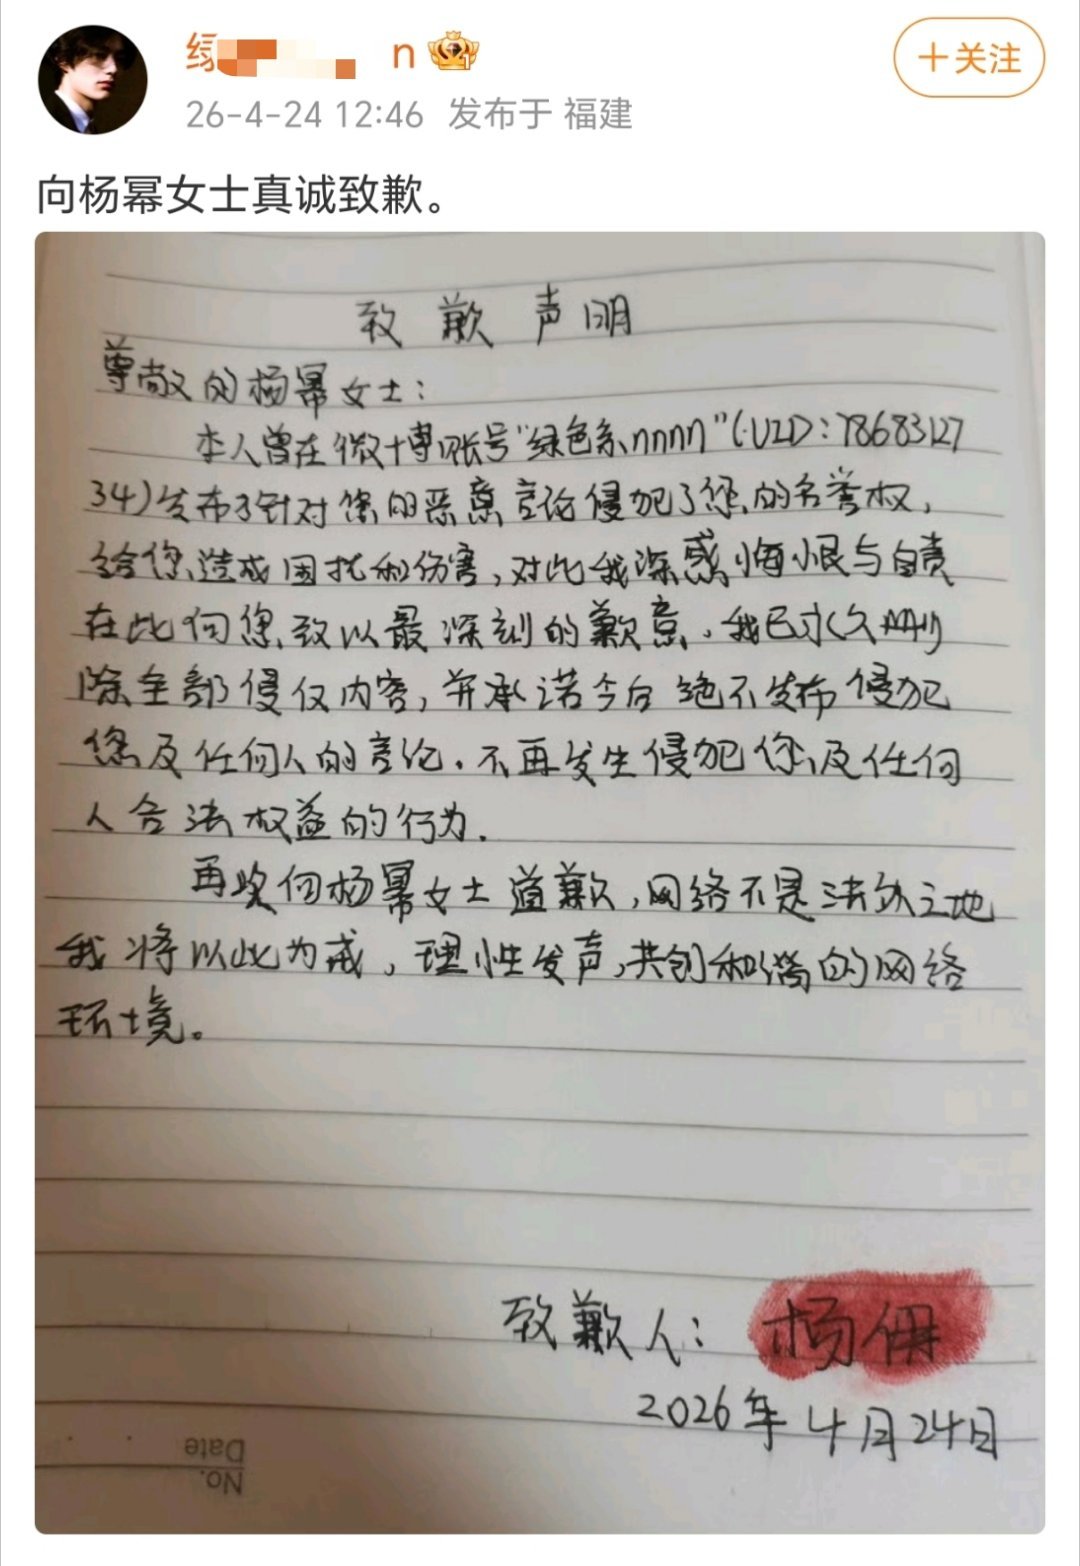 绿
n
+关注
26-4-24 12:46 发布于 福建
向杨幂女士真诚致歉。
致歉声明
尊敬的杨幂女士：
本人曾在微博账号“绿色系nnnn”(UID：78683127
34)发布了针对您的恶意言论侵犯了您的名誉权，
给您造成困扰和伤害，对此我深感悔恨与自责
在此向您致以最深刻的歉意，我已永久删
除全部侵仅内容，并承诺今后绝不发布侵犯
您及任何人的言论。不再发生侵犯您及任何
人合法权益的行为。
再次向杨幂女士道歉，网络不是法外之地
我将以此为戒，理性发声，共创和谐的网络
环境。
致歉人：杨
2026年4月24日
Date
No.